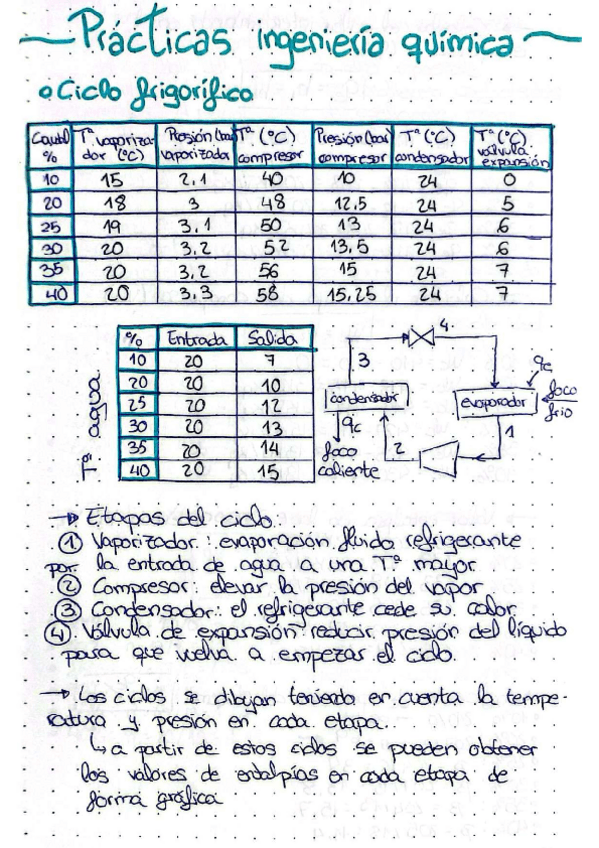 Prácticas ingeniería química
Ciclo frigorífico
Caudal % | Tª vaporizador (ºC) | Presión (bar) vaporizador | Tª (ºC) compresor | Presión (bar) compresor | Tª (ºC) condensador | Tª (ºC) válvula expansión
10 | 15 | 2,1 | 40 | 10 | 24 | 0
20 | 18 | 3 | 48 | 12,5 | 24 | 5
25 | 19 | 3,1 | 50 | 13 | 24 | 6
30 | 20 | 3,2 | 52 | 13,5 | 24 | 6
35 | 20 | 3,2 | 56 | 15 | 24 | 7
40 | 20 | 3,3 | 58 | 15,25 | 24 | 7
Tª agua
% | Entrada | Salida
10 | 20 | 7
20 | 20 | 10
25 | 20 | 12
30 | 20 | 13
35 | 20 | 14
40 | 20 | 15
4
3
qc
condensador
evaporador
foco frío
qc
2
1
foco
caliente
→ Etapas del ciclo
① Vaporizador: evaporación fluido refrigerante
por la entrada de agua a una Tª mayor
② Compresor: elevar la presión del vapor
③ Condensador: el refrigerante cede su calor
④ Válvula de expansión: reducir presión del líquido
para que vuelva a empezar el ciclo.
→ Los ciclos se dibujan teniendo en cuenta la tempe-
ratura y presión en cada etapa.
↳ a partir de estos ciclos se pueden obtener
los valores de entalpías en cada etapa de
forma gráfica